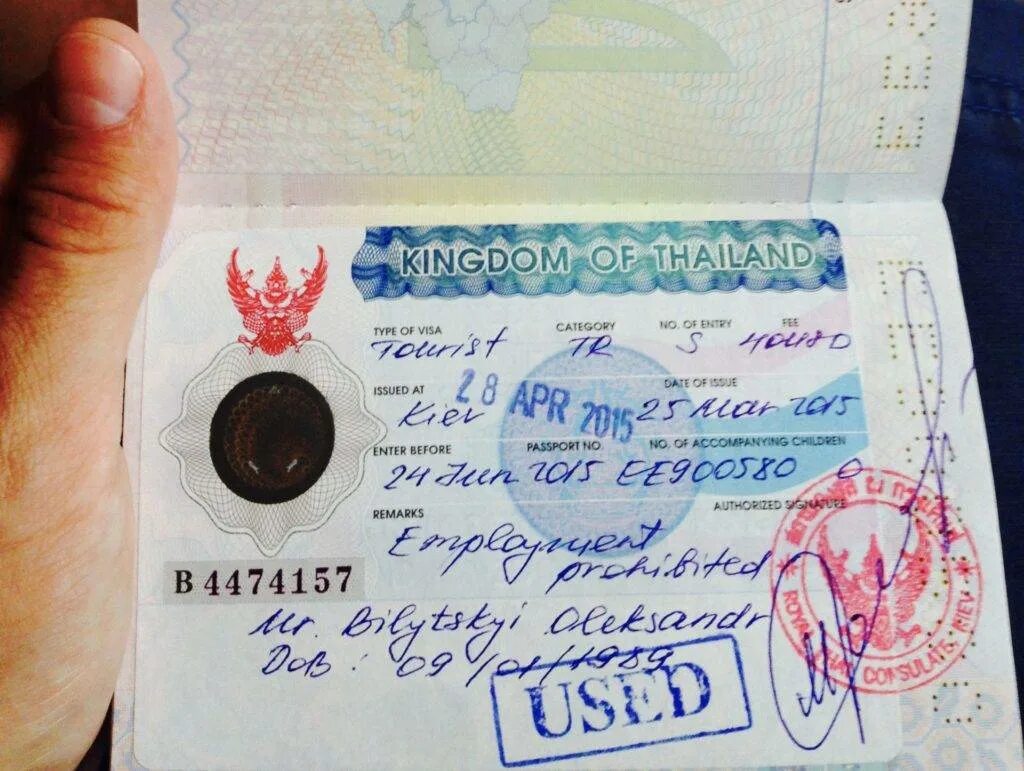 KINGDOM OF THAILAND
TYPE OF VISA CATEGORY NO. OF ENTRY FEE
Tourist TR S
ISSUED AT DATE OF ISSUE
28 APR 2015
Kiev 25 Mar 2015
ENTER BEFORE PASSPORT NO. NO. OF ACCOMPANYING CHILDREN
24 Jun 2015 EE900580 0
REMARKS AUTHORIZED SIGNATURE
Employment
prohibited
B 4474157
Mr. Bilytskyi Oleksandr
DoB : 09/01/1989
USED
ROYAL THAI CONSULATE, KIEV